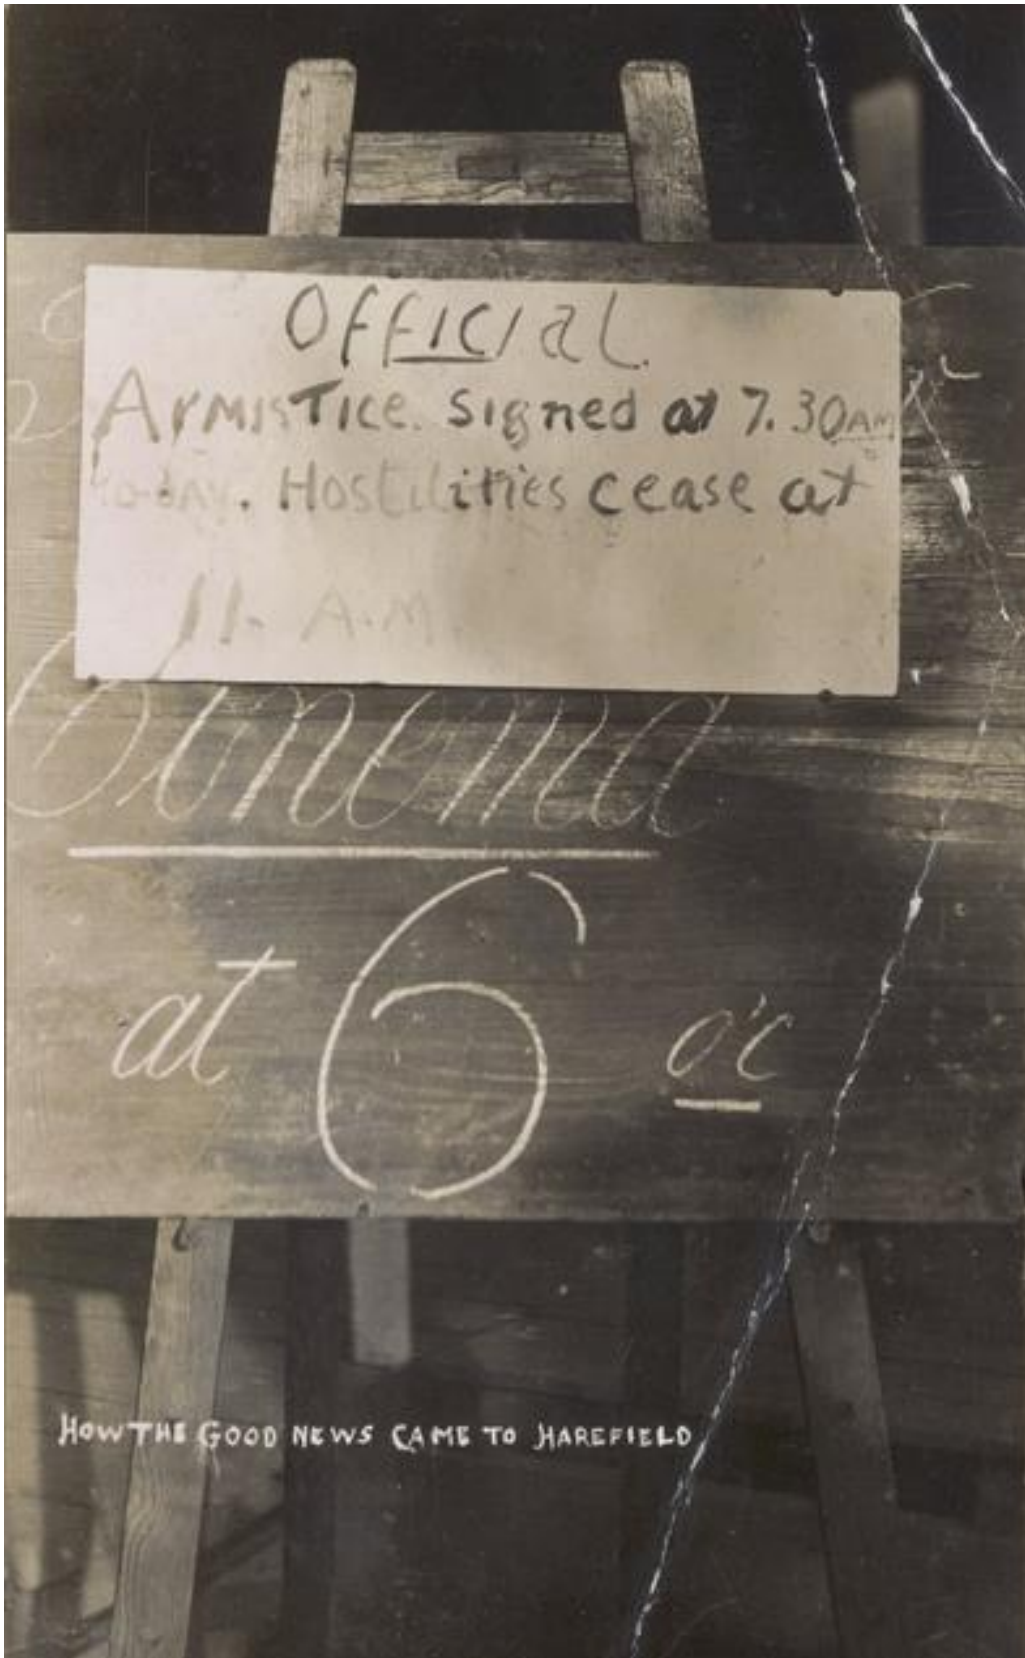 Official.
Armistice. signed at 7.30AM
to-day. Hostilities cease at
11. A.M.
Cinema
at 6 o'c
HOW THE GOOD NEWS CAME TO HAREFIELD